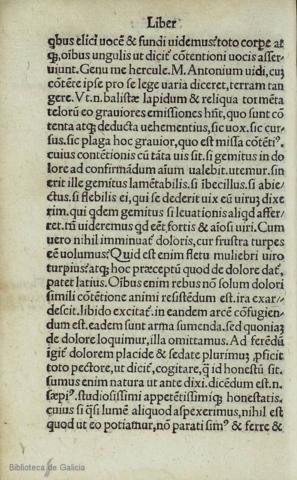 Liber
qbus elici uocē & fundi uidemus: toto corpe at
q;, oībus ungulis ut dicit͛ cōtentioni uocis asser⸗
uiunt. Genu me hercule. M. Antonium uidi, cū
cōtēte ipse pro se lege uaria diceret, terram tan
gere. Vt.n. balistæ lapidum & reliqua tormēta
telorū eo grauiores emissiones hn̄t, quo sunt cō
tenta atq; deducta uehementius, sic uox. sic cur⸗
sus. sic plaga hoc grauior, quo est missa cōtēti⁹.
cuius contētionis cū tāta uis sit. si gemitus in do
lore ad confirmādum aīum ualebit. utemur. sin
erit ille gemitus lamētabilis. si ībecillus. si abie⸗
ctus. si flebilis ei, qui se dederit uix eū uirum dixe
rim. qui qdem gemitus si leuationis aliqd affer⸗
ret. tn̄ uideremus qd eēt͛ fortis & aīosi uiri. Cum
uero nihil imminuat͛ doloris, cur frustra turpes
eē uolumus? Quid est enim fletu muliebri uiro
turpius? atq; hoc præceptū quod de dolore dat͛,
patet latius. Oībus enim rebus nō solum dolori
simili cōtētione animi resistēdum est. ira exar⸗
descit. libido excitat͛. in eandem arcem cōfugien⸗
dum est. eadem sunt arma sumenda. sed quoniaz
de dolore loquimur, illa omittamus. Ad ferēdū
īgit͛ dolorem placide & sedate plurimuz ꝓficit
toto pectore, ut dicit͛, cogitare, q̄ id honestū sit.
sumus enim natura ut ante dixi. dicēdum est.n.
sæpi⁹. studiosissimi appetētissimiq; honestatis.
cuius si q̄si lumē aliquod aspexerimus, nihil est
quod ut eo potiamur, nō parati sim⁹ & ferre &
Biblioteca de Galicia